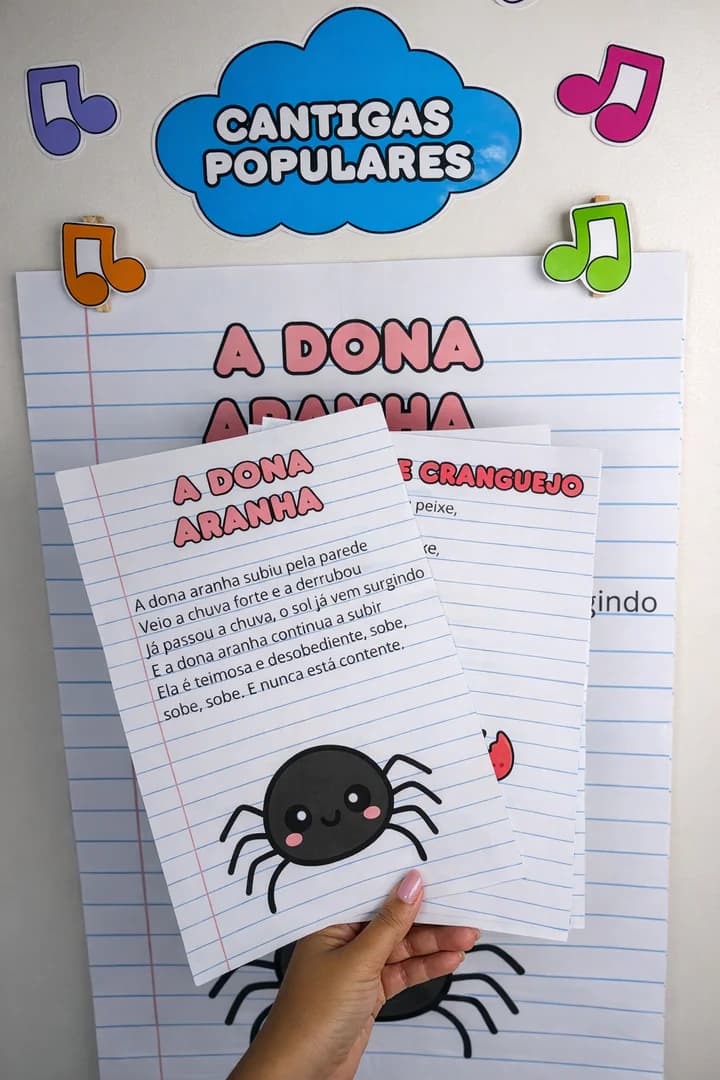 CANTIGAS
POPULARES
A DONA
ARANHA
A DONA
ARANHA
A dona aranha subiu pela parede
Veio a chuva forte e a derrubou
Já passou a chuva, o sol já vem surgindo
E a dona aranha continua a subir
Ela é teimosa e desobediente, sobe,
sobe, sobe. E nunca está contente.
E CRANGUEJO
peixe,